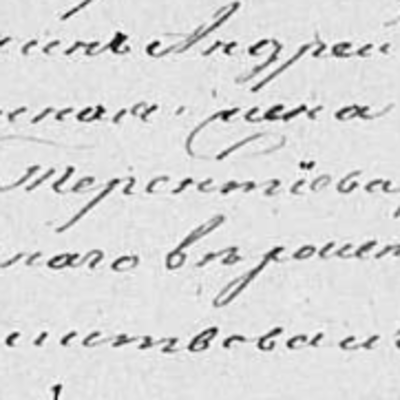 инъ Андрей
ная жена
Терентіева
наго въ роиен
митвовалъ